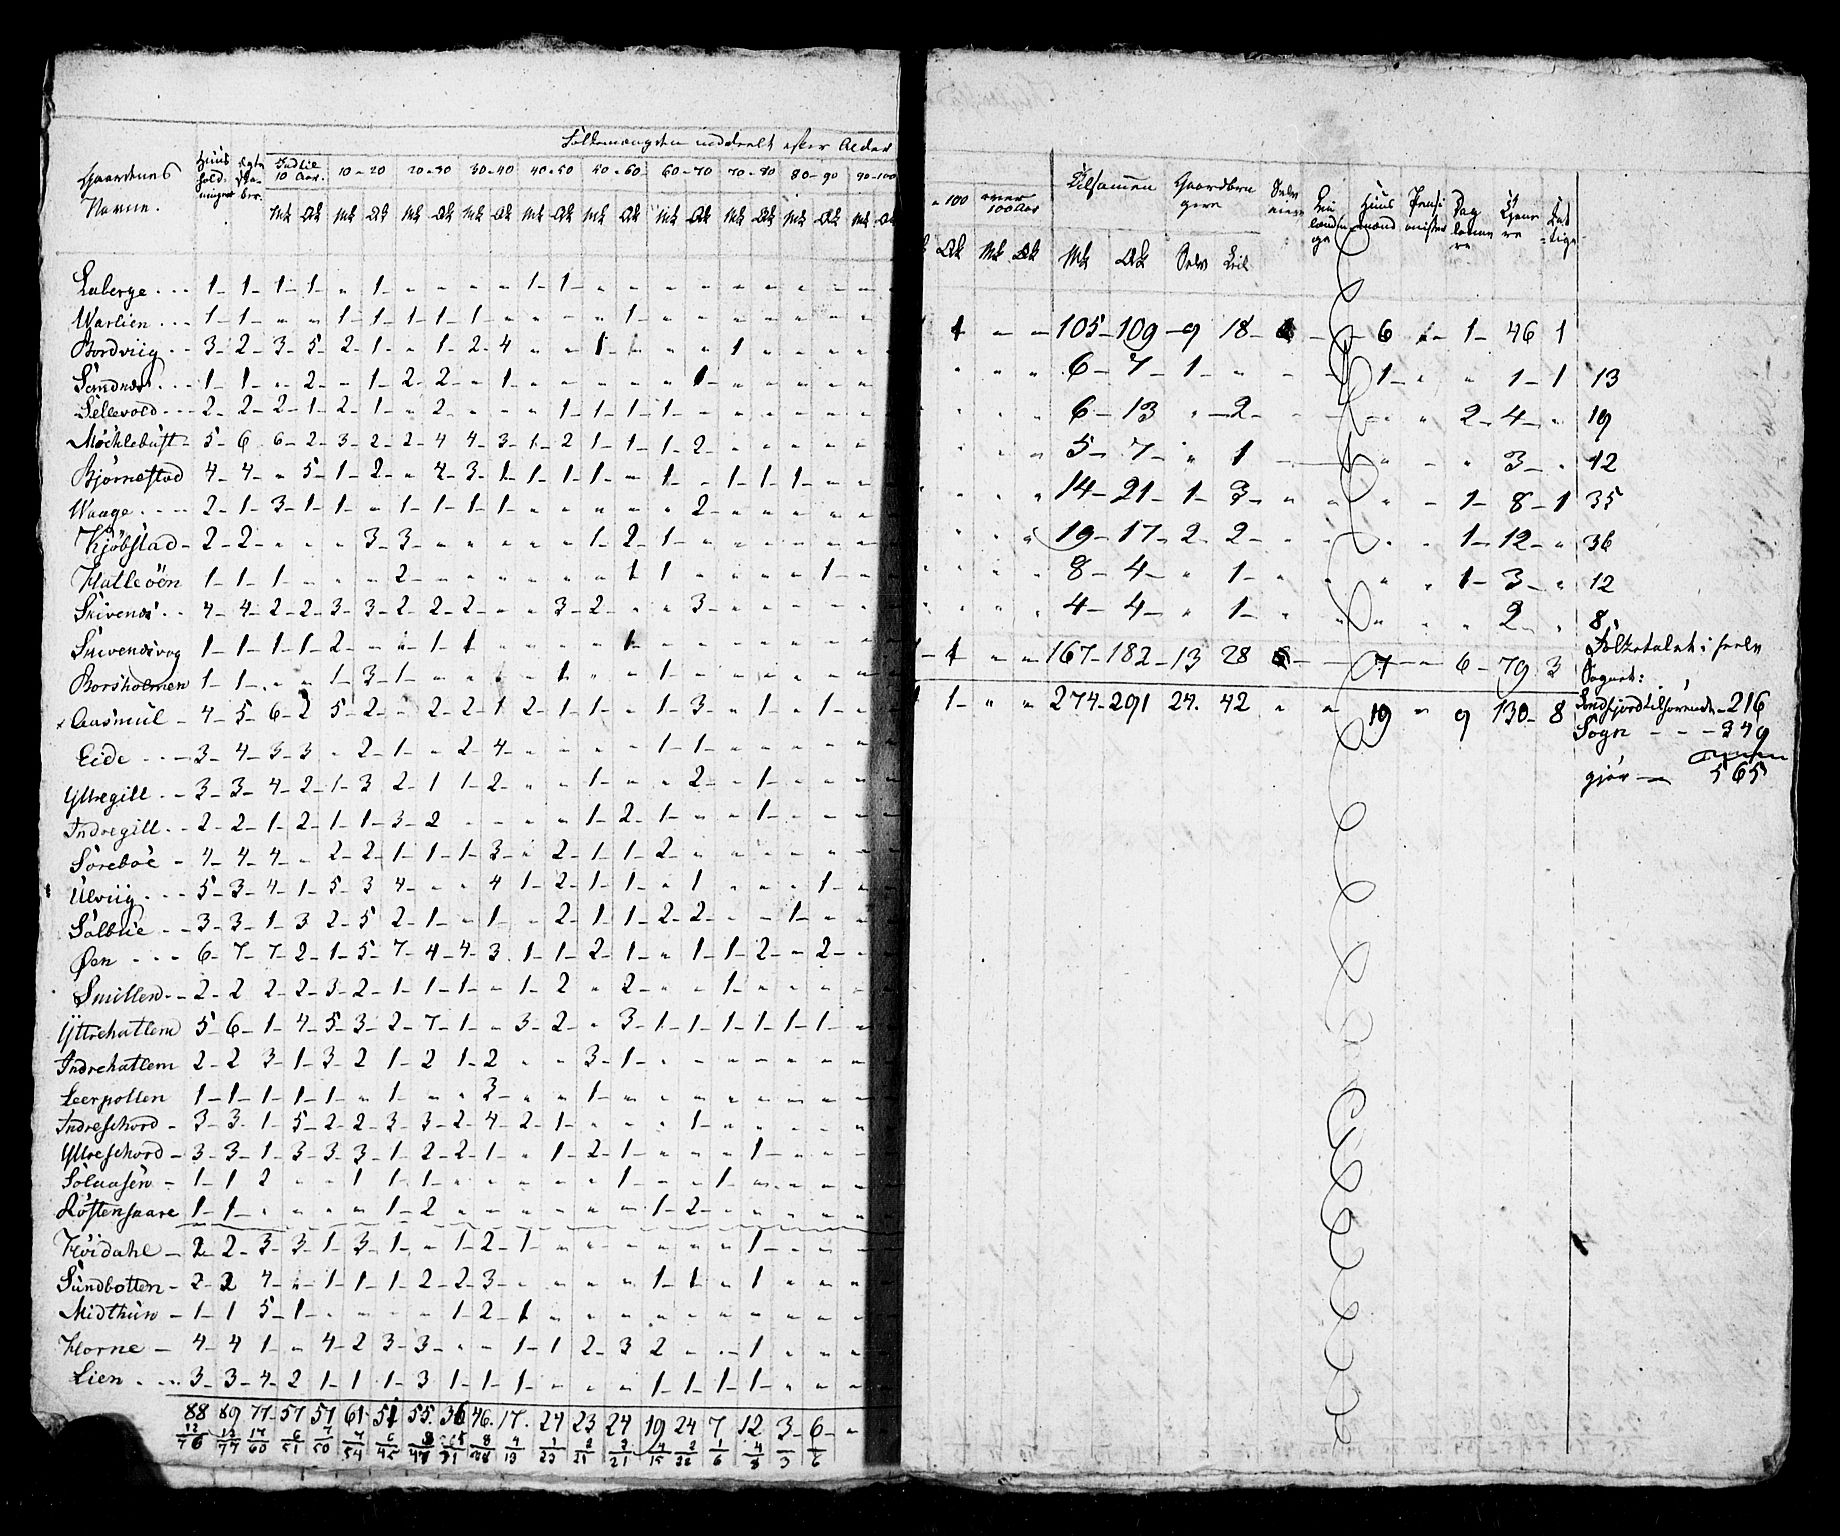 Folkemængden inddeelt efter Alder
Gaardenes Navne. Huusholdninger Indtil 10 Aar. 10-20 20-30 30-40 40-50 50-60 60-70 70-80 80-90 90-100
Mk Qk Mk Qk Mk Qk Mk Qk Mk Qk Mk Qk Mk Qk Mk Qk Mk Qk Mk Qk
Laberge... 1- 1- 1- 1- " 1- " " " " 1- 1- " " " " " " " "
Warlien... 1- 1- " " 1- 1- 1- 1- 1- " " " " 1- " " " " " "
Bordviig.. 3- 2- 3- 5- 2- 1- " 1- 2- 4- " " 1- 1- " " 1- " " "
Sandnæs... 1- 1- " 2- " 1- 2- 2- " 1- " " " " " 1- " " " "
Sellevold... 2- 2- 2- 1- 2- 1- " 2- " " " 1- 1- 1- 1- " " " " "
Möchlebust- 5- 6- 6- 2- 3- 2- 2- 4 4- 3- 1- 2- 1- 1- 1- 2- " " " "
Bjørnestad 4- 4- " 5- 1- 2- " 4- 3- 1- 1- 1- 1- " 1- " 1- 1- 1- "
Waage.... 2- 1- 3- 1- 1- " 1- 1- 1- 1- " " " " " 2- " " " "
Kjøbstad- 2- 2- " " " 3- 3- " " " " " 1- 2- 1- " " " " "
Hatleöen 1- 1- 1- " " " 2- " " " " " " 1 1- " " " " 1-
Skivenes.. 4- 4- 2- 2- 3- 3- 2- 2- 2- " " 3- 2- " " 3- " " " "
Skivenesvog 1- 1- 1- 1- 2- " " 1- 1 " " " " 1- " " " " " "
Borsholmen 1- 1- " " 1- 3- 1- " " " " 1- " " 1- " " " " "
x Aasmul- 4- 5- 6- 2 5- 2- " 2- 2- 1 2- 1- 1- " 1- 3- " 1- " 1-
Eide... 3- 4- 3- 3 " 2- 1- " 2- 4- " " " " 1- 1- " " " "
Yttregill.. 3- 3- 4- 2- 1- 3 2- 1 1- 2- " " 1- " " 2- " 1- " "
Indregill.. 2- 2- 1- 2- 1- 1- 3- 2 " " " " 1- 2- 1- " " 1- " "
Söreböe - 4- 4- 4- " 2- 2- 1- 1- 1- 3- " 2- 1- 1- 2- " " " " "
Ulviig... 5- 3- 4- 1- 5- 3 4- " " 4 1- 2- 1- 1- " 1- " " " 1-
Solbue - 3- 3- 1- 3 2- 5 2- 1- " 1- " 2- 1- 1- 2- 2- " " 1- "
Øen ... 6- 7- 7- 2- 1- 5- 7- 4- 4- 3. 1- 1- 2- 1- " 1- 1 2- " 2-
Smillend.. 2- 2 2- 2- 3- 2- 1- 1- 1- " 1- 2 " 2- " " 1- " " "
Yttrehatlem 5- 6- 1- 4- 5- 3- 2- 7- 1- " 3- 2- " 3- 1- 1- 1- 1- 1- 1-
Indrehatlem 2- 2 3- 1- 3- 2 1- 2 1- 2- " " 3- 1- " " " " " "
Leerpollen 1- 1- 1- 1- 1- " 1- " " 3- " " 1- " " " " " " "
Indreschord - 3- 3- 1- 5- 2- 2- 3- 3- 2- 4- 2- 1- " " " 1- " " " "
Yttreschord - 3- 3- 1- 3- 3- 3- 1- 2- 2- 1- " 1- 2- 1- " " " 1- " "
Soluasen - 1- 1 2 " " 1 1- 1- " " " " " 1- " " 1- " " "
Röstensaare 1- 1- " " " " 1- 2- " " " " " " 1- 2- " " " "
Höidahl - 2- 2- 3- 3- 1- 3- 1- " 1- 2- 1- " " " " " " 1- " "
Sundbotten- 2- 2 4- " 1- 1- 1- 2- 2- 3- " " " " 1- 1- " 1- " "
Midthun - 1- 1 5- 1- " " " " 1- 2- 1 " " " " " " " " "
Horne - 4- 4 1- " 4- 2 3- 3- " " 1- 1 2- 3 2- " " 1- " "
Lien... 3- 3- 4- 2 1- 1 1- 3 1- 1- 1- " " " 1- 1- 1- 1- " "
88 89 77- 57 57 61- 51 55. 36 46. 17. 24 23 24 19 24 7 12 3- 6-
12 12 17 6 7 7 6 8 5 8 4 1 2 3 4 2 1 4
76 77 60 51 50 54 45 47 31 38 13 23 21 21 15 22 6 8 3 6
-100 over 100 Aar Tilsamen Gaardbrugere Huusmænd Pensionister Daglönnere Tjenere
Qk Mk Qk Mk Qk Selv Leil
1 " " 105- 109- 9 18- 6 " 1- 46 1
" " " 6- 7- 1- " " 1- " " 1- 1 13
" " " 6- 13 " 2- " " 2- 4- " 19
" " " 5- 7- " 1 " " " 3- " 12
" " " 14- 21- 1- 3- " " " 1- 8- 1 35
" " " 19- 17- 2- 2- " " 1- 12- " 36
" " " 8- 4- " 1- " " 1- 3- " 12
" " " 4- 4- " 1- " " " 2 " 8
1- " " 167- 182- 13 28 7- " 6- 79 3
1- " " 274- 291 24. 42 " " 19 " 9 130- 8
Folketalet i heele
Sognet:
Indfjord tilhørende- 216
Sogn - - - 349
gjør - 565